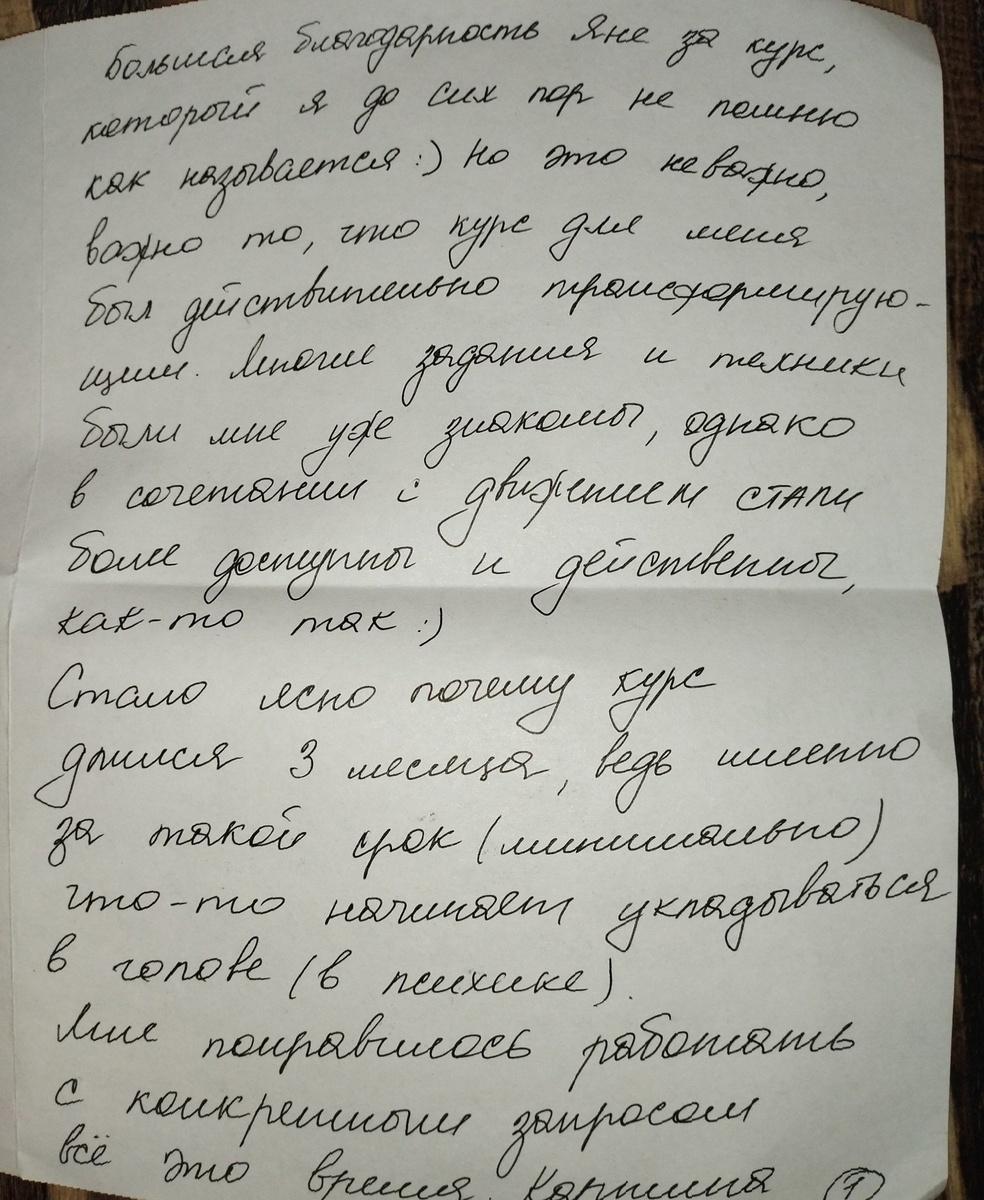 Большая благодарность Яне за курс,
который я до сих пор не помню
как называется :) Но это неважно,
важно то, что курс для меня
был действительно трансформирую-
щим. Многие задания и техники
были мне уже знакомы, однако
в сочетании с движением стали
более доступны и действенны,
как-то так :)
Стало ясно почему курс
длился 3 месяца, ведь именно
за такой срок (минимально)
что-то начинает укладываться
в голове (в психике).
Мне понравилось работать
с конкретным запросом
всё это время. Картина 1